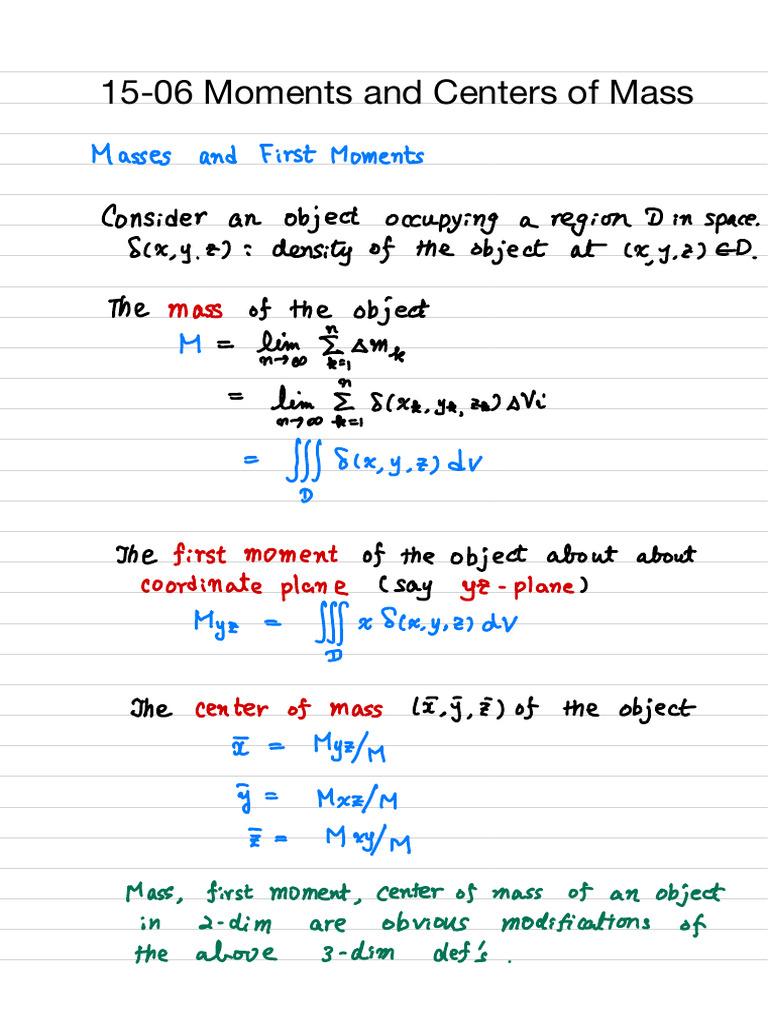 15-06 Moments and Centers of Mass
Masses and First Moments
Consider an object occupying a region D in space.
δ(x,y,z) : density of the object at (x,y,z) ∈ D.
The mass of the object
M = lim_{n→∞} Σ_{k=1}^{n} Δm_k
= lim_{n→∞} Σ_{k=1}^{n} δ(x_k, y_k, z_k) ΔV_i
= ∭_D δ(x,y,z) dV
The first moment of the object about about
coordinate plane (say yz-plane)
M_yz = ∭_D x δ(x,y,z) dV
The center of mass (x̄,ȳ,z̄) of the object
x̄ = M_yz/M
ȳ = M_xz/M
z̄ = M_xy/M
Mass, first moment, center of mass of an object
in 2-dim are obvious modifications of
the above 3-dim def's.